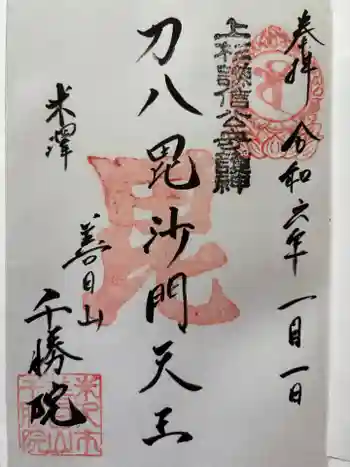 奉拝 令和六年 一月一日
上杉謙信公守護神
刀八毘沙門天王
毘
米澤
善日山
千勝院